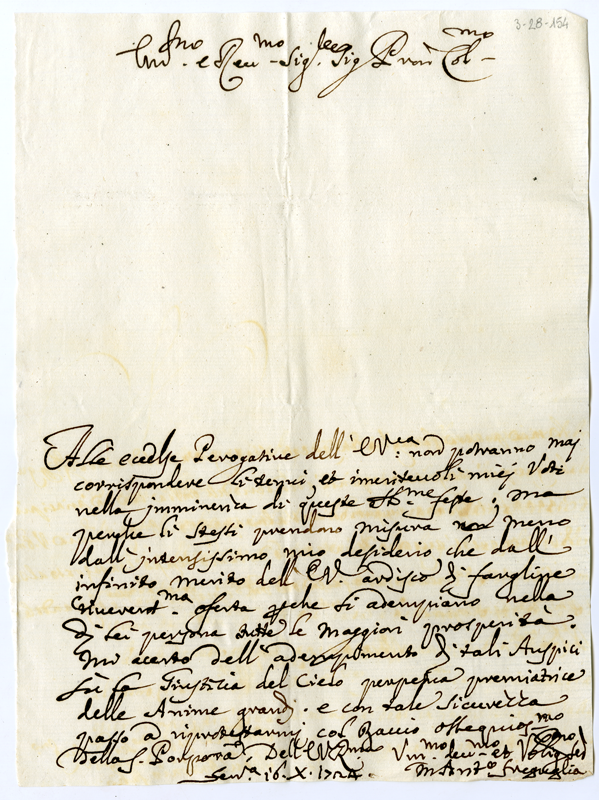 3-28-154
Em.mo e Reu.mo Sig. Sig. P.ron Col.mo
Alle eccelse Perogatiue dell' E.V.ra non potranno maj
corrispondere li tenui et imeriteuoli miej Voti
nella imminenza di queste S.me feste; ma
perche li stessi prendono misura non meno
dall' intensissimo mio desiderio che dall'
infinito merito dell' E.V. ardisco di fargliene
riuerent.ma oferta perche si adempiano nella
di lei persona tutte le maggiori prosperità.
Mi acerto dell' adempimento di tali Auspici
la Giustitia del Cielo perpetua premiatrice
delle Anime grandi. e con tale sicurezza
passo à riprotestarmi col Bacio ossequios.mo
della S. Porpora, Dell' E.V. R.ma
16. X.